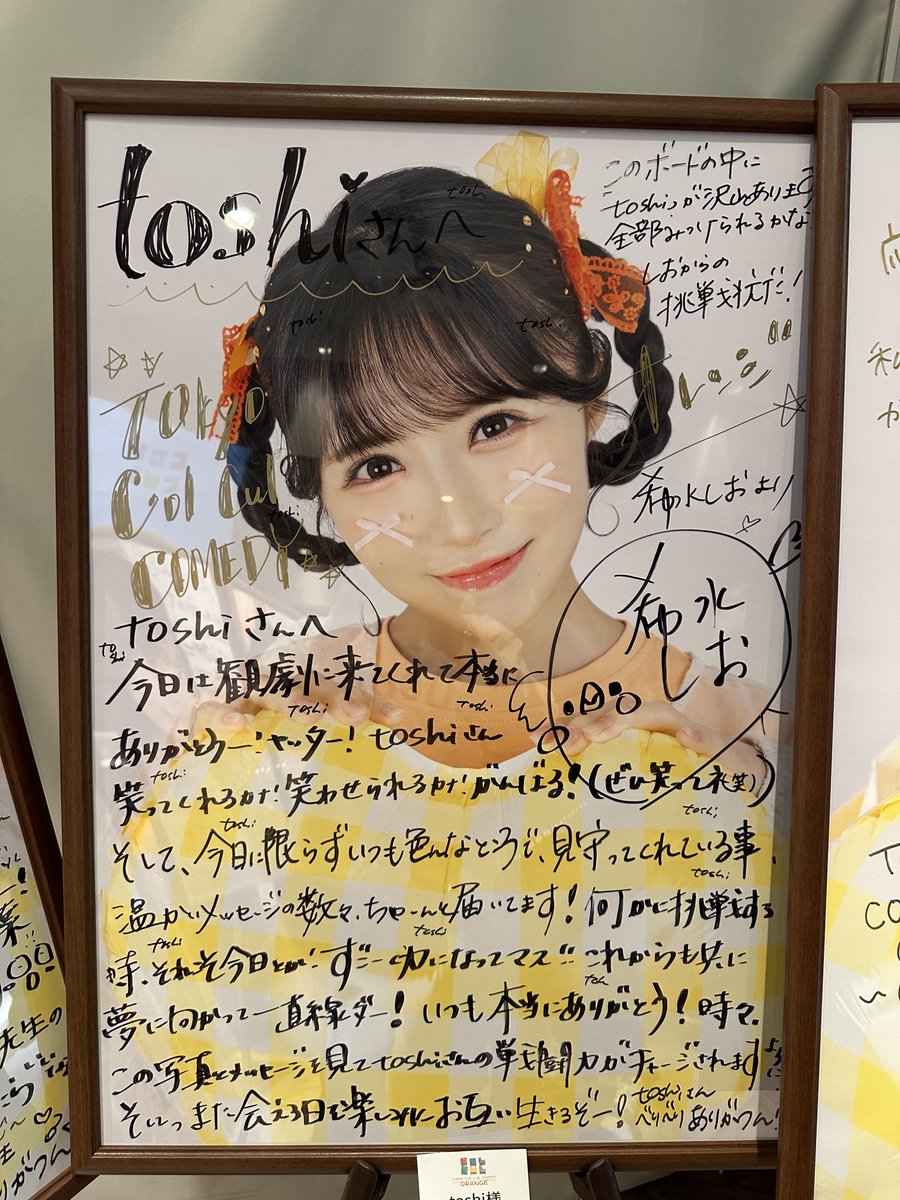 toshiさんへ
toshi
このボードの中に
toshiっが沢山あります
全部みつけられるかな
しおからの
挑戦状だ!
toshi
toshi
Tokyo
Col Cul
COMEDY
オレンジ
toshi
希水しおより
希水
しお
toshiさんへ
toshi
今日は観劇に来てくれて本当に
toshi
toshi
ありがとうー!ヤッター!toshiさん
toshi
笑ってくれるカナ!笑わせられるカナ!がんばる!(ぜひ笑ってネ(笑))
toshi
toshi
そして、今日に限らずいつも色んなところで、見守ってくれている事、
toshi
温かいメッセージの数々、ちゃーんと届いてます!何かに挑戦する
toshi
toshi
時、それこそ今日とか…ずーっと力になってマス!!これからも共に
toshi
夢に向かって一直線ダー!いつも本当にありがとう!時々、
この写真とメッセージを見てtoshiさんの戦闘力がチャージされますよう
そいっまた会える日を楽しみにお互い生きるぞー!
toshiさん
べりべりありがつん!
TOKYO COL CUL COMEDY
ORANGE
toshi様
先生の